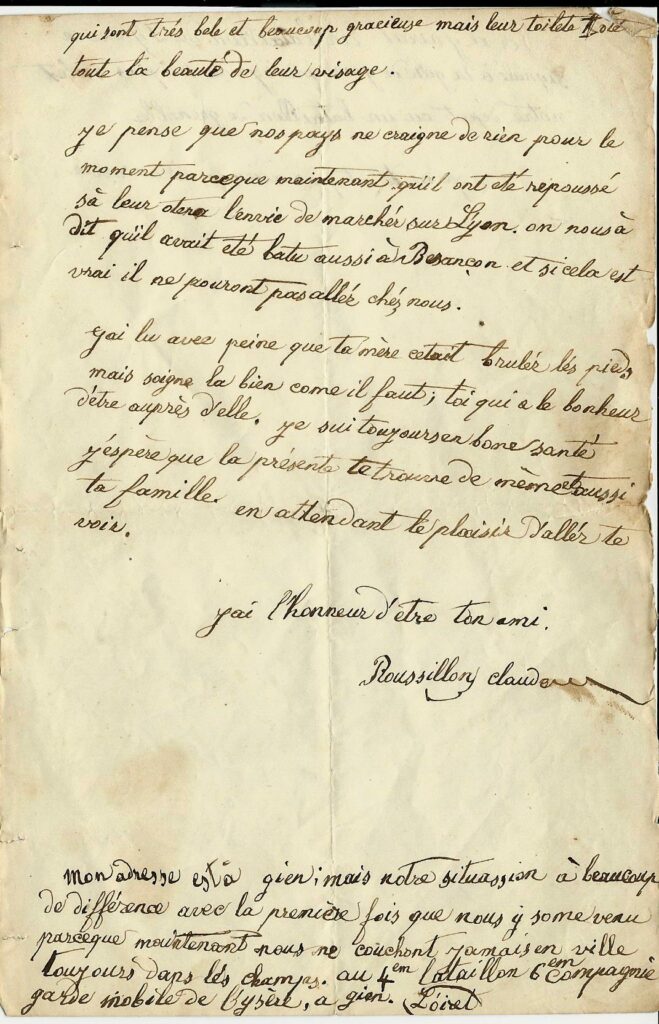 qui sont trés bele et beaucoup gracieuse mais leur toilete
toute la beauté de leur visage.
je pense que nos pays ne craigne de rien pour le
moment parceque maintenant qu'il ont été repoussé
sà leur otera l'envie de marchér sur Lyon. on nous à
dit qu'il avait été batu aussi à Besançon et si cela est
vrai il ne pouront pas allér chéz nous.
j'ai lu avec peine que ta mère cetait brulér lés pieds
mais soigne la bien come il faut; toi qui a le bonheur
d'être auprès d'elle. je sui toujours en bone santé
j'espère que la présente te trouve de même et aussi
ta famille. en attendant le plaisir d'allér te
voir.
j'ai l'honneur d'être ton ami.
Roussillon claude
mon adresse est à gien; mais notre situassion à beaucoup
de différence avec la première fois que nous y some venu
parceque maintenant nous ne couchont jamais en ville
toujours dans lés champs. au 4em bataillon 6em compagnie
garde mobile de l'ysère, a gien. Loiret